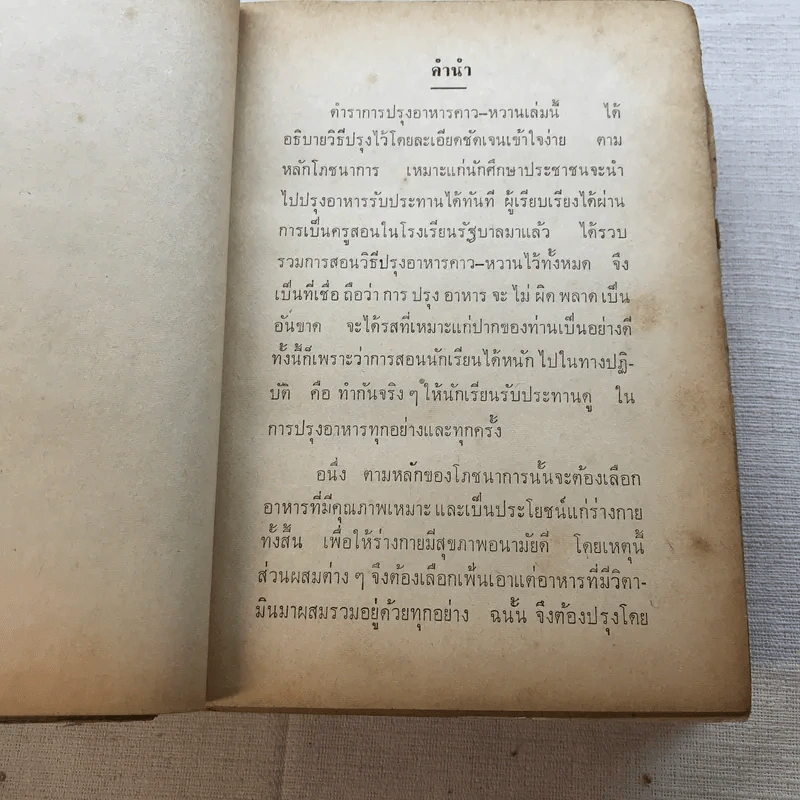 คำนำ
ตำราการปรุงอาหารคาว–หวานเล่มนี้ ได้
อธิบายวิธีปรุงไว้โดยละเอียดชัดเจนเข้าใจง่าย ตาม
หลักโภชนาการ เหมาะแก่นักศึกษาประชาชนจะนำ
ไปปรุงอาหารรับประทานได้ทันที ผู้เรียบเรียงได้ผ่าน
การเป็นครูสอนในโรงเรียนรัฐบาลมาแล้ว ได้รวบ
รวมการสอนวิธีปรุงอาหารคาว–หวานไว้ทั้งหมด จึง
เป็นที่เชื่อ ถือว่า การ ปรุง อาหาร จะ ไม่ ผิด พลาด เป็น
อันขาด จะได้รสที่เหมาะแก่ปากของท่านเป็นอย่างดี
ทั้งนี้ก็เพราะว่าการสอนนักเรียนได้หนัก ไปในทางปฏิ-
บัติ คือ ทำกันจริง ๆ ให้นักเรียนรับประทานดู ใน
การปรุงอาหารทุกอย่างและทุกครั้ง
อนึ่ง ตามหลักของโภชนาการนั้นจะต้องเลือก
อาหารที่มีคุณภาพเหมาะ และเป็นประโยชน์แก่ร่างกาย
ทั้งสิ้น เพื่อให้ร่างกายมีสุขภาพอนามัยดี โดยเหตุนี้
ส่วนผสมต่าง ๆ จึงต้องเลือกเฟ้นเอาแต่อาหารที่มีวิตา-
มินมาผสมรวมอยู่ด้วยทุกอย่าง ฉนั้น จึงต้องปรุงโดย